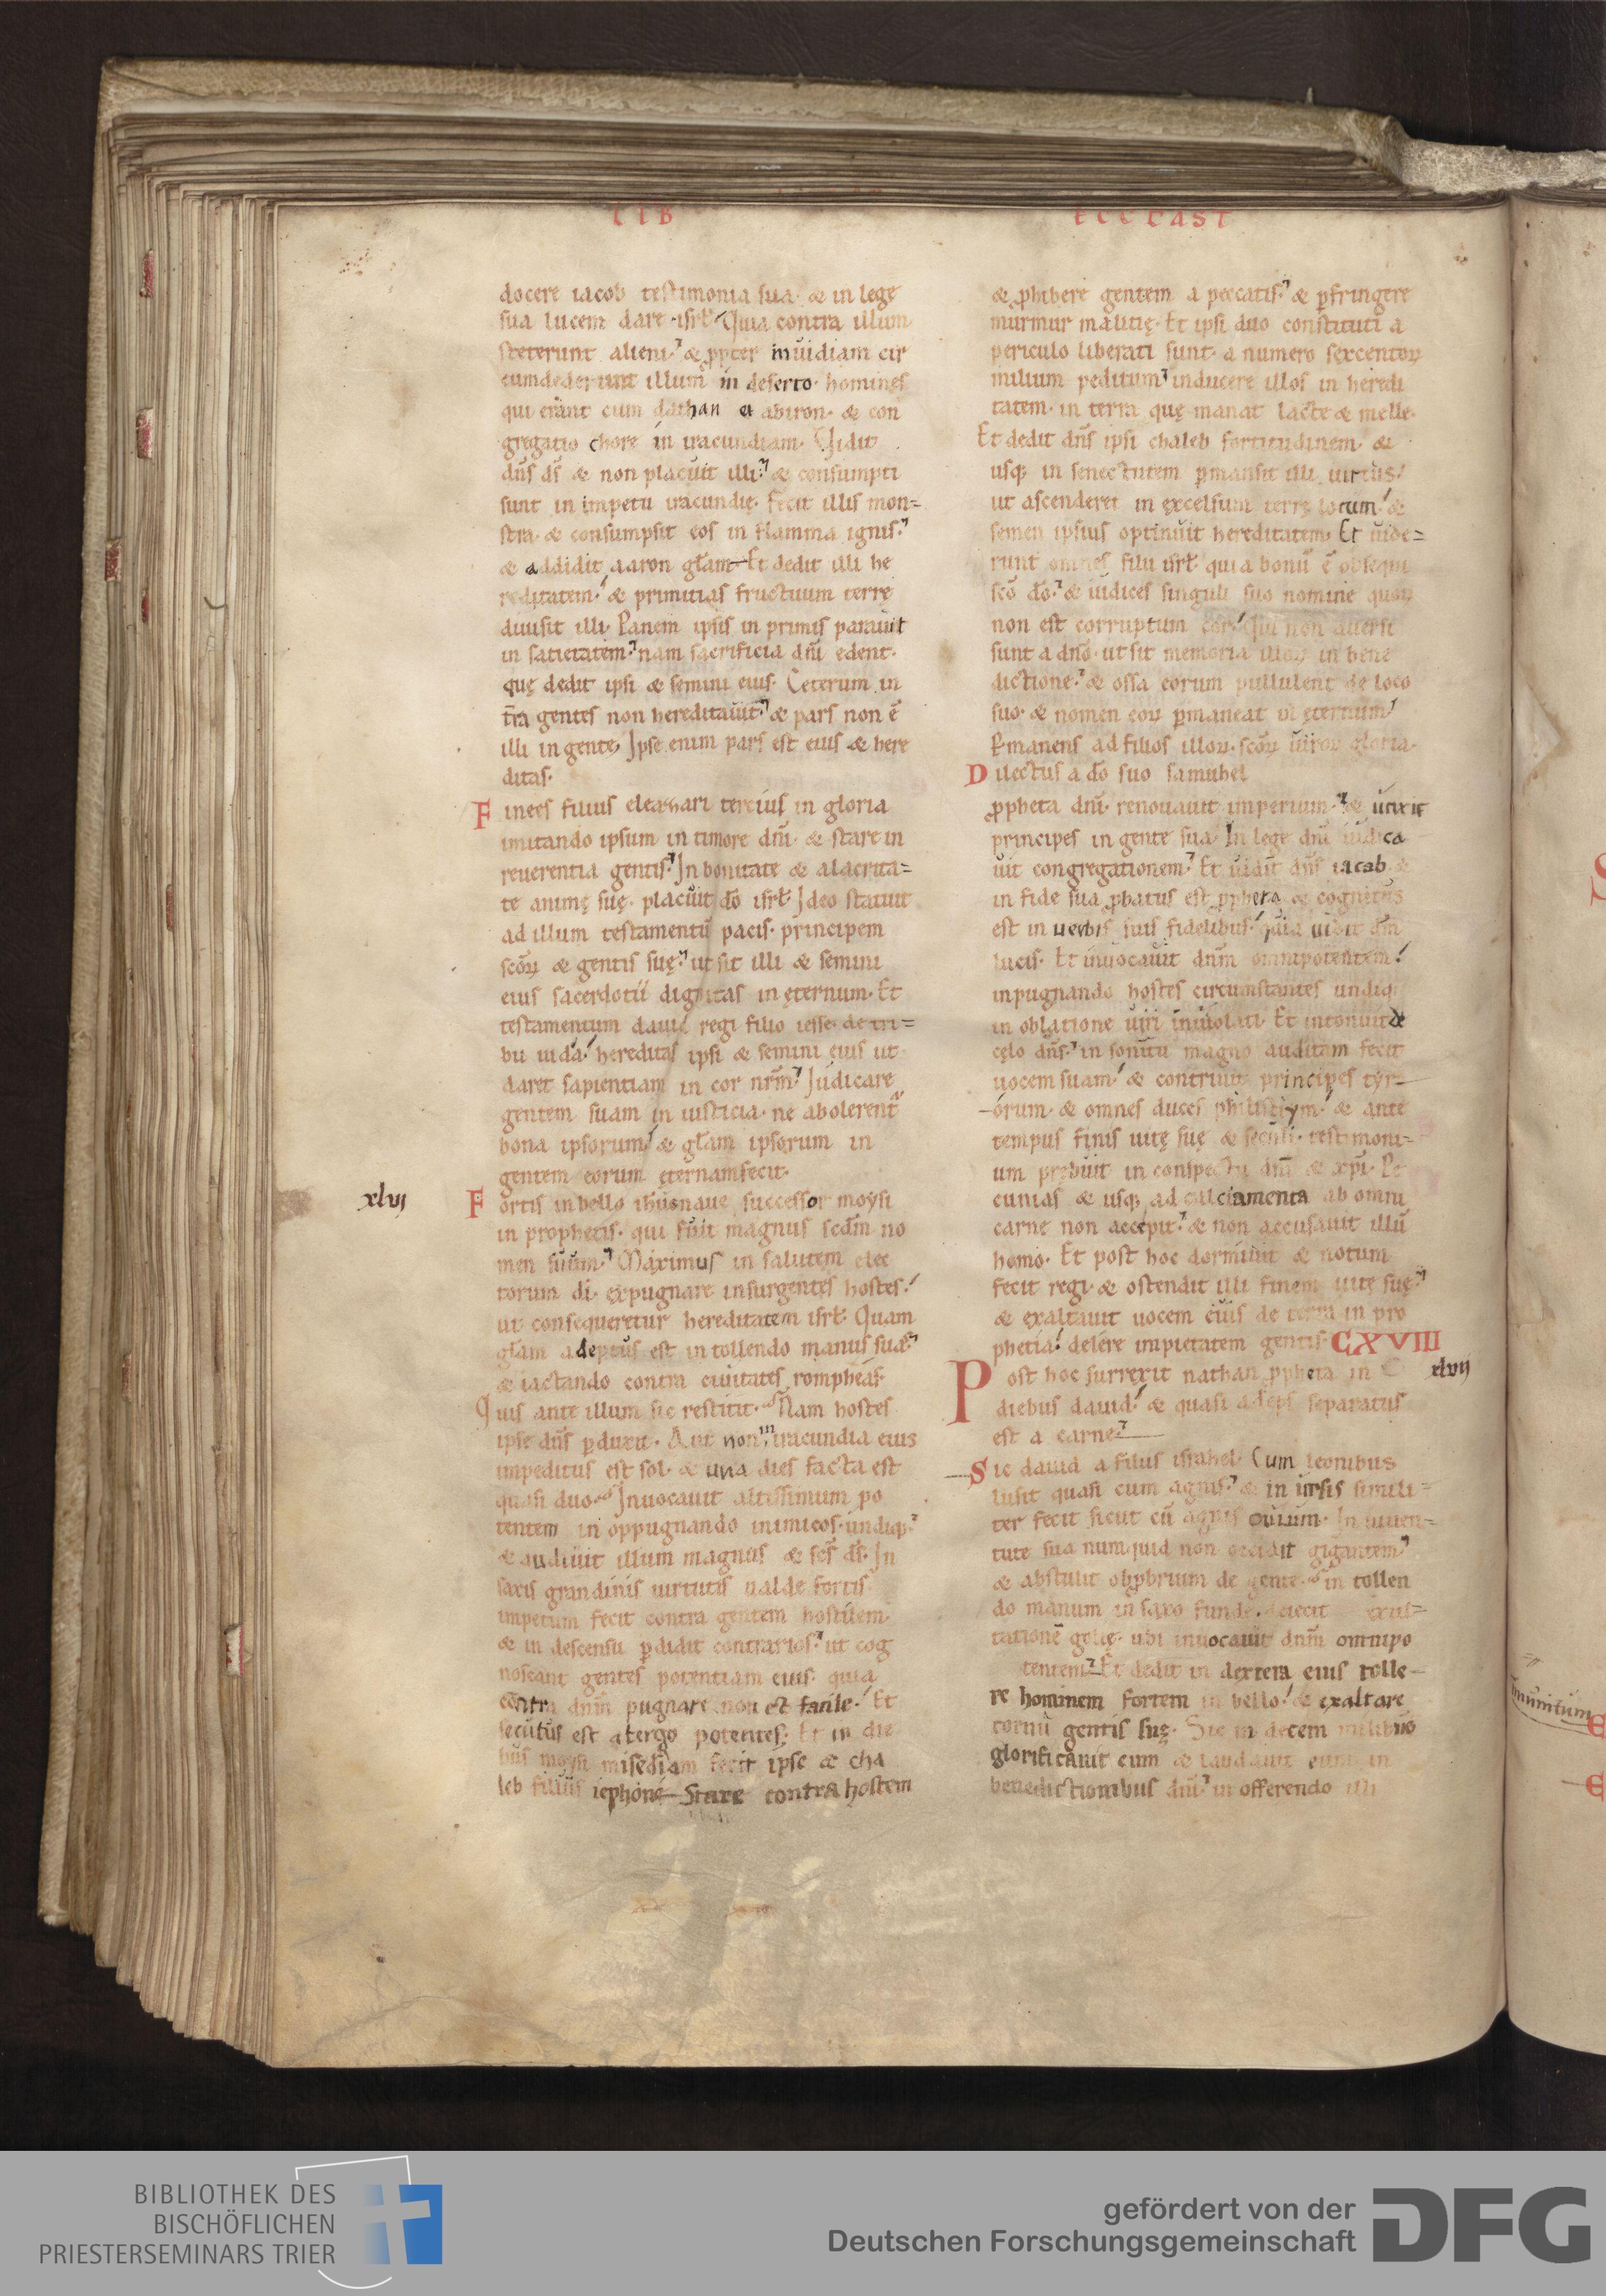 LIB
ECCLAST
docere iacob testimonia sua· & in lege
sua lucem dare isrł· Quia contra illum
steterunt alieni· & ꝓpter inuidiam cir
cumdederunt illum in deserto· homines
qui erant cum dathan et abiron· & con
gregatio chore in iracundiam· Uidit
dñs ds̄ & non placuit illi· & consumpti
sunt in impetu iracundię· Fecit illis mon=
stra· & consumpsit eos in flamma ignis·
& addidit aaron głam Et dedit illi he
reditatem· & primitias fructuum terrę
diuisit illi· Panem ipsis in primis parauit
in satietatem· nam sacrificia dñi edent·
quę dedit ipsi & semini eius· Ceterum in
tr̄a gentes non hereditauit· & pars non ē
illi in gente, Ipse enim pars est eius & here
ditas·
Finees filius eleazari tercius in gloria
imitando ipsum in timore dñi· & stare in
reuerentia gentis· In bonitate & alacrita=
te animę suę· placuit dō isrł· Ideo statuit
ad illum testamentū pacis· principem
scōꝝ & gentis suę· ut sit illi & semini
eius sacerdotii dignitas in ęternum· Et
testamentum dauid regi filio iesse· de tri=
bu iuda· hereditas ipsi & semini eius ut
daret sapientiam in cor nr̄m· Iudicare
gentem suam in iusticia· ne abolerent᷑
bona ipsorum· & głam ipsorum in
gentem eorum ęternam fecit·
xlvj
Fortis in bello ih̄us naue successor moysi
in prophetis· qui fuit magnus scdm no
men suum· Maximus in salutem elec
torum di· expugnare insurgentes hostes·
ut consequeretur hereditatem isrł· Quam
głam adeptus est in tollendo manus suas·
& iactando contra ciuitates rompheas·
Quis ante illum sic restitit· Nam hostes
ipse dñs ꝑduxit· Aut non in iracundia eius
impeditus est sol· & una dies facta est
quasi duo· Inuocauit altissimum po
tentem in oppugnando inimicos· undiqꝫ
& audiuit illum magnus & scs̄ ds̄· In
saxis grandinis uirtutis ualde fortis·
impetum fecit contra gentem hostilem·
& in descensu ꝑdidit contrarios· ut cog
noscant gentes potentiam eius· quia
contra dñm pugnare non est facile· Et
secutus est a tergo potentes· Et in die
bus moysi miscđiam fecit ipse & cha
leb filius iephone Stare contra hostem
& ꝓhibere gentem a peccatis· & ꝑfringere
murmur malitię· Et ipsi duo constituti a
periculo liberati sunt· a numero sexcentoꝝ
milium peditum· inducere illos in heredi
tatem· in terra quę manat lacte & melle·
Et dedit dñs ipsi chaleb fortitudinem· &
usqꝫ in senectutem ꝑmansit illi uirtus·
ut ascenderet in excelsum terrę locum· &
semen ipsius optinuit hereditatem· Et uide=
runt omnes filii isrł quia bonū ē obsequi
scō dō· & iudices singuli suo nomine quoꝝ
non est corruptum cor· Qui non auersi
sunt a dño· ut sit memoria illoꝝ in bene
dictione· & ossa eorum pullulent de loco
suo· & nomen eoꝝ ꝑmaneat in ęternum·
Ꝑmanens ad filios illoꝝ· scōꝝ uiroꝝ gloria·
Dilectus a dō suo samuhel
ꝓpheta dñi· renouauit imperium· & unxit
principes in gente sua· In lege dñi iudica
uit congregationem· Et uidit dñs iacob &
in fide sua ꝓbatus est ꝓpheta & cognitus
est in uerbis suis fidelibus· quia uidit dm̄
lucis· Et inuocauit dñm omnipotentem·
inpugnando hostes circumstantes undiqꝫ
in oblatione uiri inuiolati· Et intonuit de
cęlo dñs· in sonitu magno auditam fecit
uocem suam· & contriuit principes tyr=
orum· & omnes duces philistiym· & ante
tempus finis uitę suę & seculi· testimoni=
um prębuit in conspectu dñi & xp̄i· Pe
cunias & usqꝫ ad calciamenta ab omni
carne non accepit· & non accusauit illū
homo· Et post hoc dormiuit & notum
fecit regi· & ostendit illi finem uitę suę·
& exaltauit uocem eius de terra in pro
phetia· delere impietatem gentis· CXVIII
xlvij
Post hoc surrexit nathan ꝓpheta in
diebus dauid· & quasi adeps separatus
est a carne·
Sic dauid a filiis israhel· Cum leonibus
lusit quasi cum agnis· & in ursis simili=
ter fecit sicut cū agnis ouium· In iuuen=
tute sua numquid non occidit gigantem·
& abstulit obꝓbrium de gente· in tollen
do manum in saxo fundę· deiecit exul=
tationē golię· ubi inuocauit dñm omnipo
tentem· Et dedit in dextera eius tolle
re hominem fortem in bello· & exaltare
cornu gentis suę· Sic in decem milibus
glorificauit eum & laudauit eum in
benedictionibus dñi· in offerendo illi
munitum
BIBLIOTHEK DES
BISCHÖFLICHEN
PRIESTERSEMINARS TRIER
gefördert von der
Deutschen Forschungsgemeinschaft
DFG